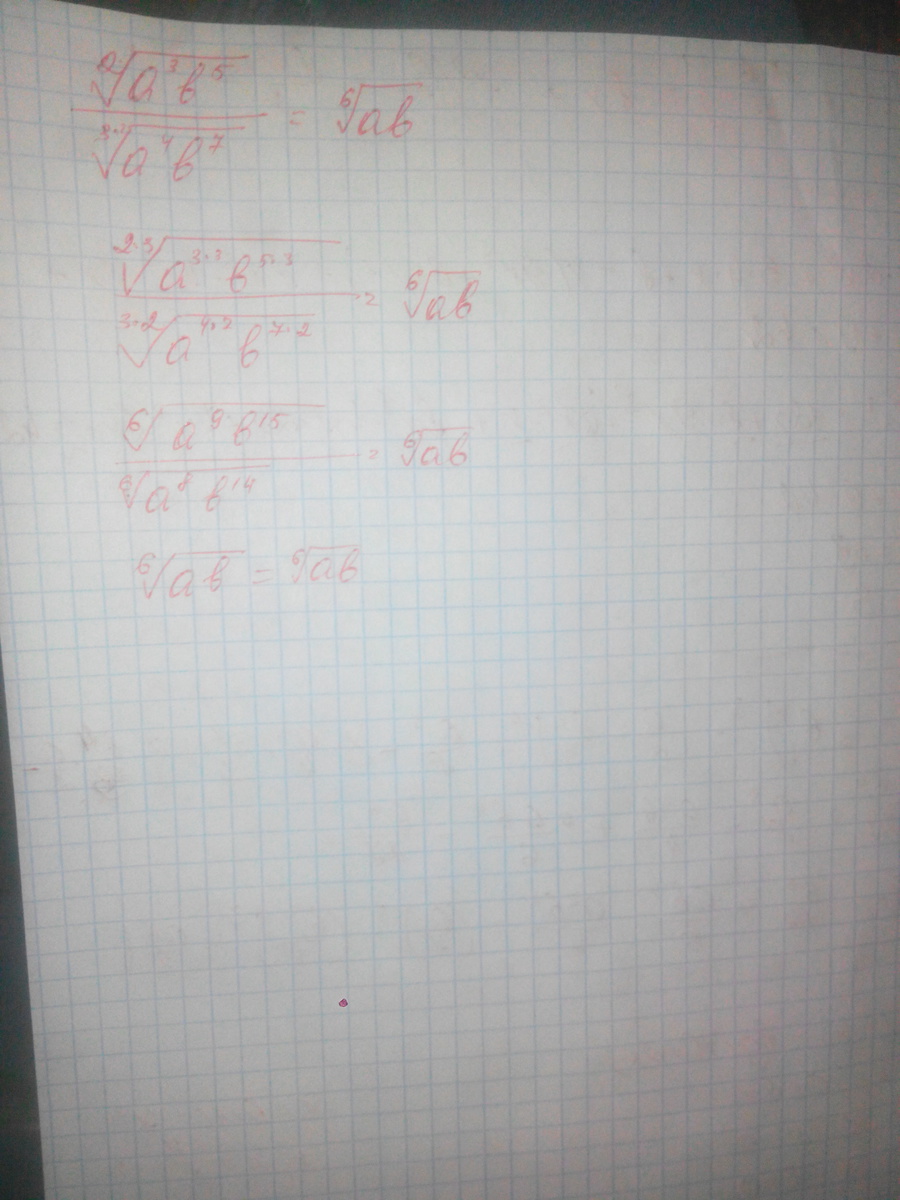 ²√(a³b⁵) / ³√(a⁴b⁷) = ⁶√(ab)
²·³√(a³·³ b⁵·³) / ³·²√(a⁴·² b⁷·²) = ⁶√(ab)
⁶√(a⁹b¹⁵) / ⁶√(a⁸b¹⁴) = ⁶√(ab)
⁶√(ab) = ⁶√(ab)